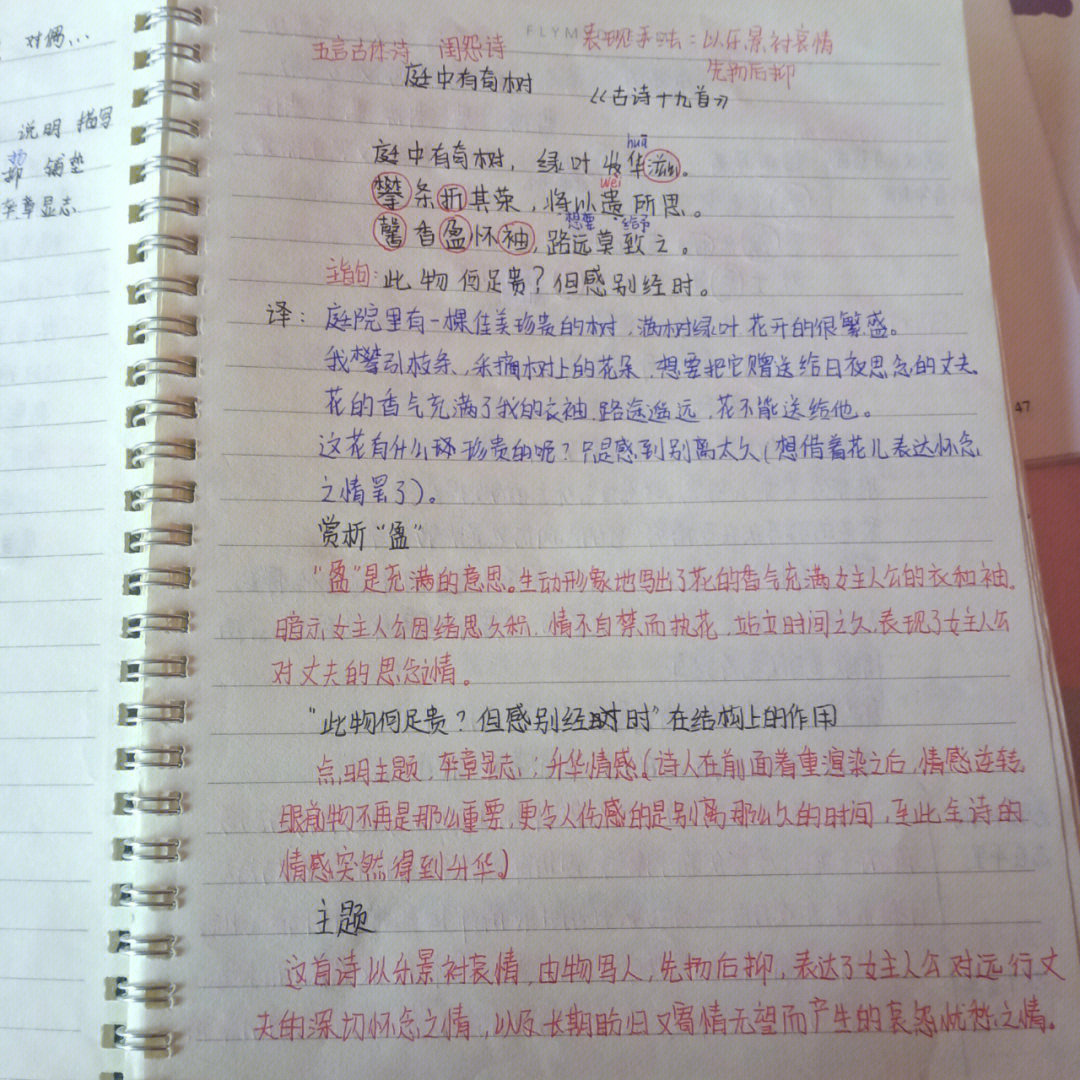 对偶...
说明 描写
扬
抑 铺垫
卒章显志
FLYM
五言古体诗 闺怨诗 表现手法：以乐景衬哀情
先扬后抑
庭中有奇树 《古诗十九首》
huā
庭中有奇树，绿叶发华滋。
wèi
攀条折其荣，将以遗所思。
想要 给予
馨香盈怀袖，路远莫致之。
主旨句：此物何足贵？但感别经时。
译：庭院里有一棵佳美珍贵的树，满树绿叶花开的很繁盛。
我攀引枝条、采摘树上的花朵，想要把它赠送给日夜思念的丈夫
花的香气充满了我的衣袖，路途遥远，花不能送给他。
这花有什么珍贵的呢？只是感到别离太久（想借着花儿表达怀念
之情罢了）。
赏析“盈”
“盈”是充满的意思。生动形象地写出了花的香气充满女主人公的衣和袖，
暗示女主人公因绪思久积，情不自禁而执花，站立时间之久，表现了女主人公
对丈夫的思念之情。
“此物何足贵？但感别经时”在结构上的作用
点明主题，卒章显志；升华情感（诗人在前面着重渲染之后，情感逆转
眼前物不再是那么重要，更令人伤感的是别离那么久的时间，至此全诗的
情感突然得到升华）
主题
这首诗以乐景衬哀情，由物写人，先扬后抑，表达了女主人公对远行丈
夫的深切怀念之情，以及长期盼归又寄情无望而产生的哀怨忧愁之情。
47